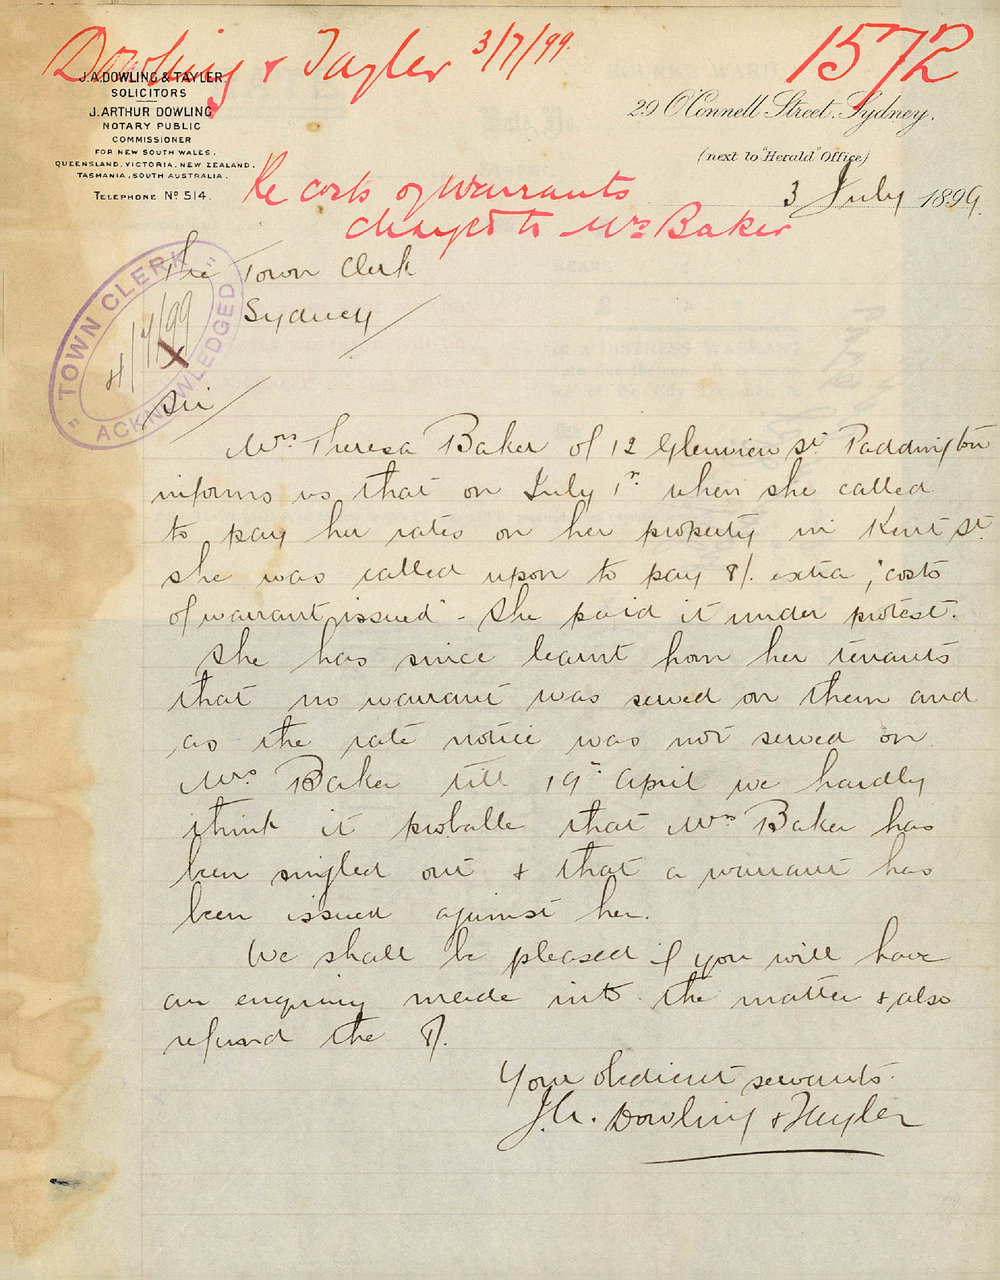 Dowling & Tayler 3/7/99.
1572
J.A. DOWLING & TAYLER.
SOLICITORS
J. ARTHUR DOWLING
NOTARY PUBLIC
COMMISSIONER
FOR NEW SOUTH WALES.
QUEENSLAND, VICTORIA, NEW ZEALAND.
TASMANIA, SOUTH AUSTRALIA.
TELEPHONE No 514.
29 O'Connell Street, Sydney.
(next to "Herald" Office)
3 July 1899.
Re costs of Warrants
charged to Mrs Baker
The Town Clerk
Sydney
"TOWN CLERK"
4/7/99
ACKNOWLEDGED
Sir
Mrs Theresa Baker of 12 Glenview St Paddington
informs us that on July 1st when she called
to pay her rates on her property in Kent St.
she was called upon to pay 8/. extra, "costs
of warrant issued" - She paid it under protest.
She has since learnt from her tenants
that no warrant was served on them and
as the rate notice was not served on
Mrs Baker till 19th April we hardly
think it probable that Mrs Baker has
been singled out & that a warrant has
been issued against her.
We shall be pleased if you will have
an enquiry made into the matter & also
refund the 8/.
Your obedient servants.
J.A. Dowling & Tayler